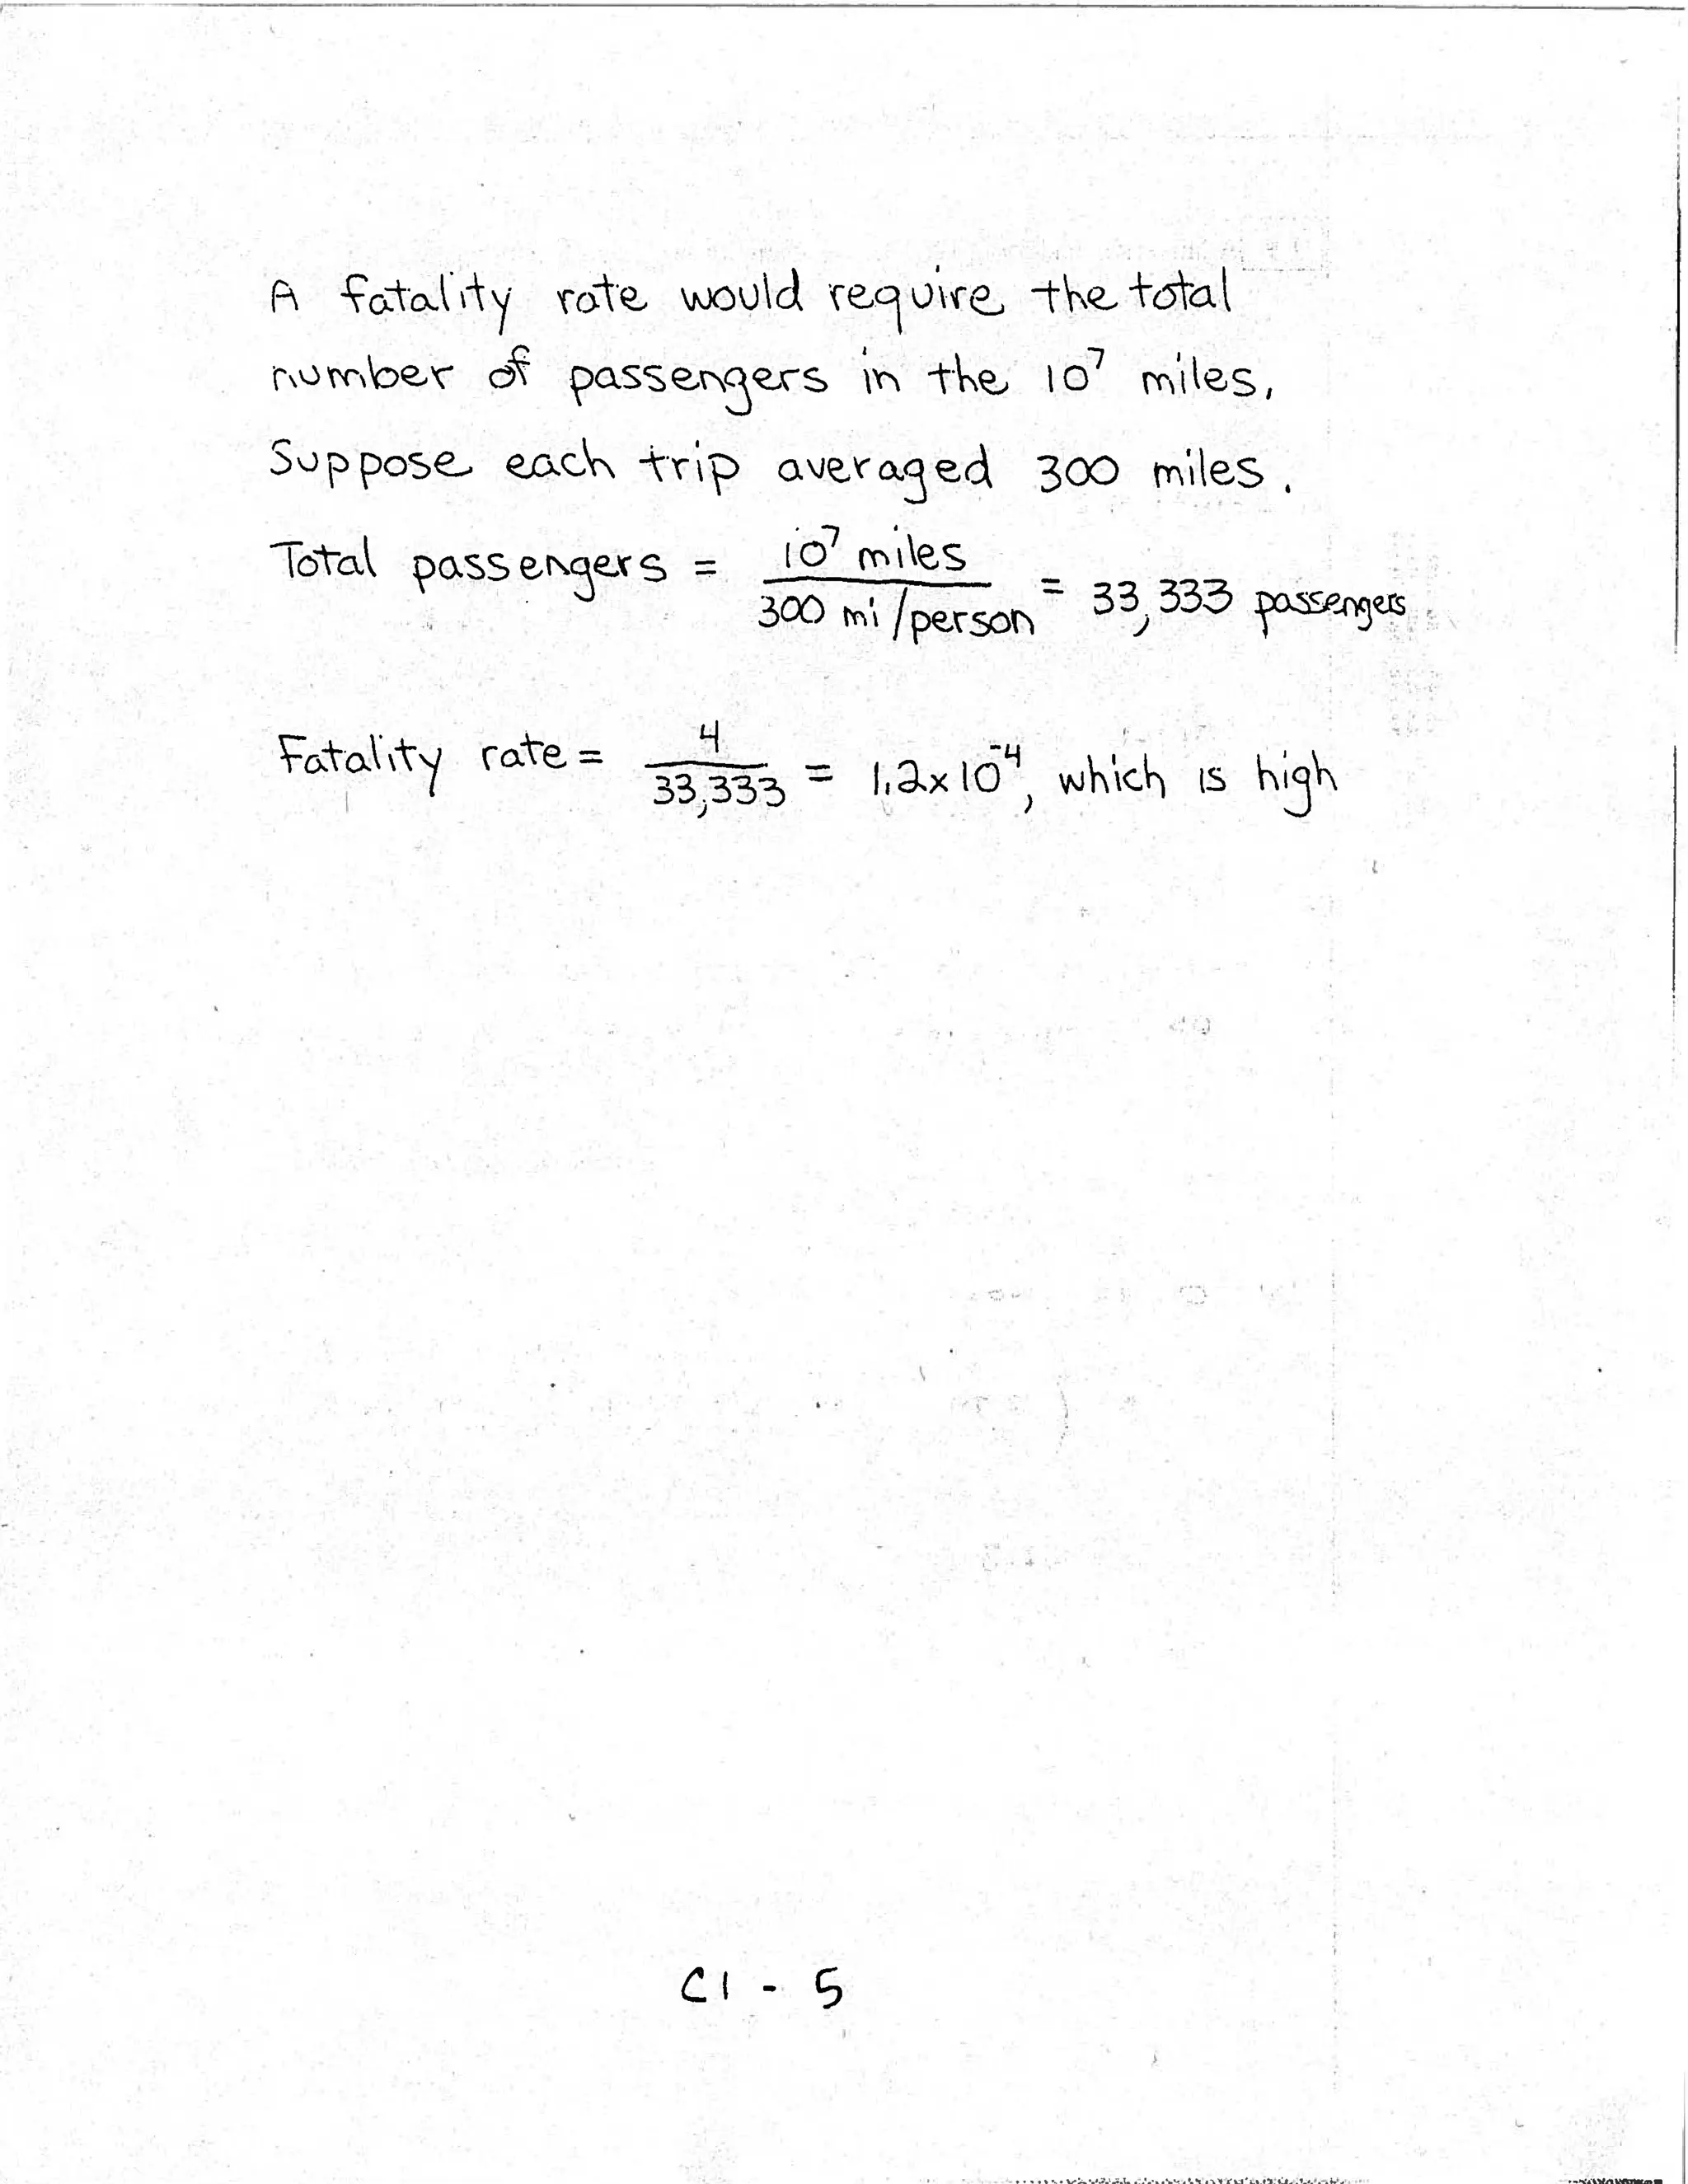 A fatality rate would require the total
number of passengers in the 10⁷ miles.
Suppose each trip averaged 300 miles.
Total passengers = 10⁷ miles / 300 mi/person = 33,333 passengers
Fatality rate = 4 / 33,333 = 1.2x10⁻⁴, which is high
C1 - 5